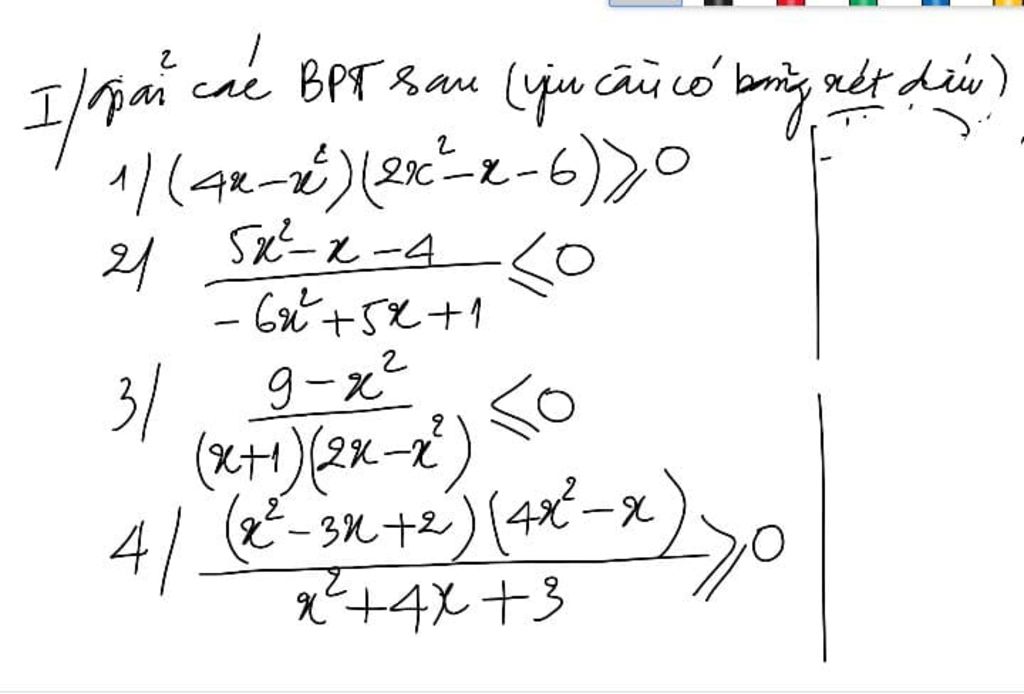 I/ giải các BPT sau (yêu cầu có bảng xét dấu)
1/ (4x-x²)(2x²-x-6)⩾0
2/ 5x²-x-4
-6x²+5x+1 ≤0
3/ 9-x²
(x+1)(2x-x²) ≤0
4/ (x²-3x+2)(4x²-x)
x²+4x+3 ⩾0